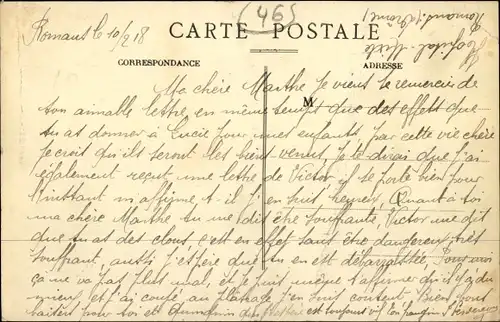 Romans le 10/2 18
(46)
CARTE POSTALE
Hôpital Mixte
Romans (Drôme)
CORRESPONDANCE
ADRESSE
M
Ma chère Marthe Je viens te remercier de
ton aimable lettre en même temps que des effets que
tu as donner à Lucie pour mes enfants, par cette vie chère
je croit qu'ils seront les bient venus, Je te dirai que j'ai
également reçut une lettre de Victor il se porte bien pour
l'instant m'affirme-t-il j'en suit heureux, Quant à toi
ma chère Marthe tu me dit être souffrante, Victor me dit
que tu as des clous, c'est en effet sans être dangereux très
souffrant, aussi j'espère que tu en est débarrassée Pour moi
ça ne va pas plus mal, et je puit même t'affirmer qu'il y a du
mieux, et j'ai coupé au plâtrage j'en suit content. Bien bons
baisers pour toi et